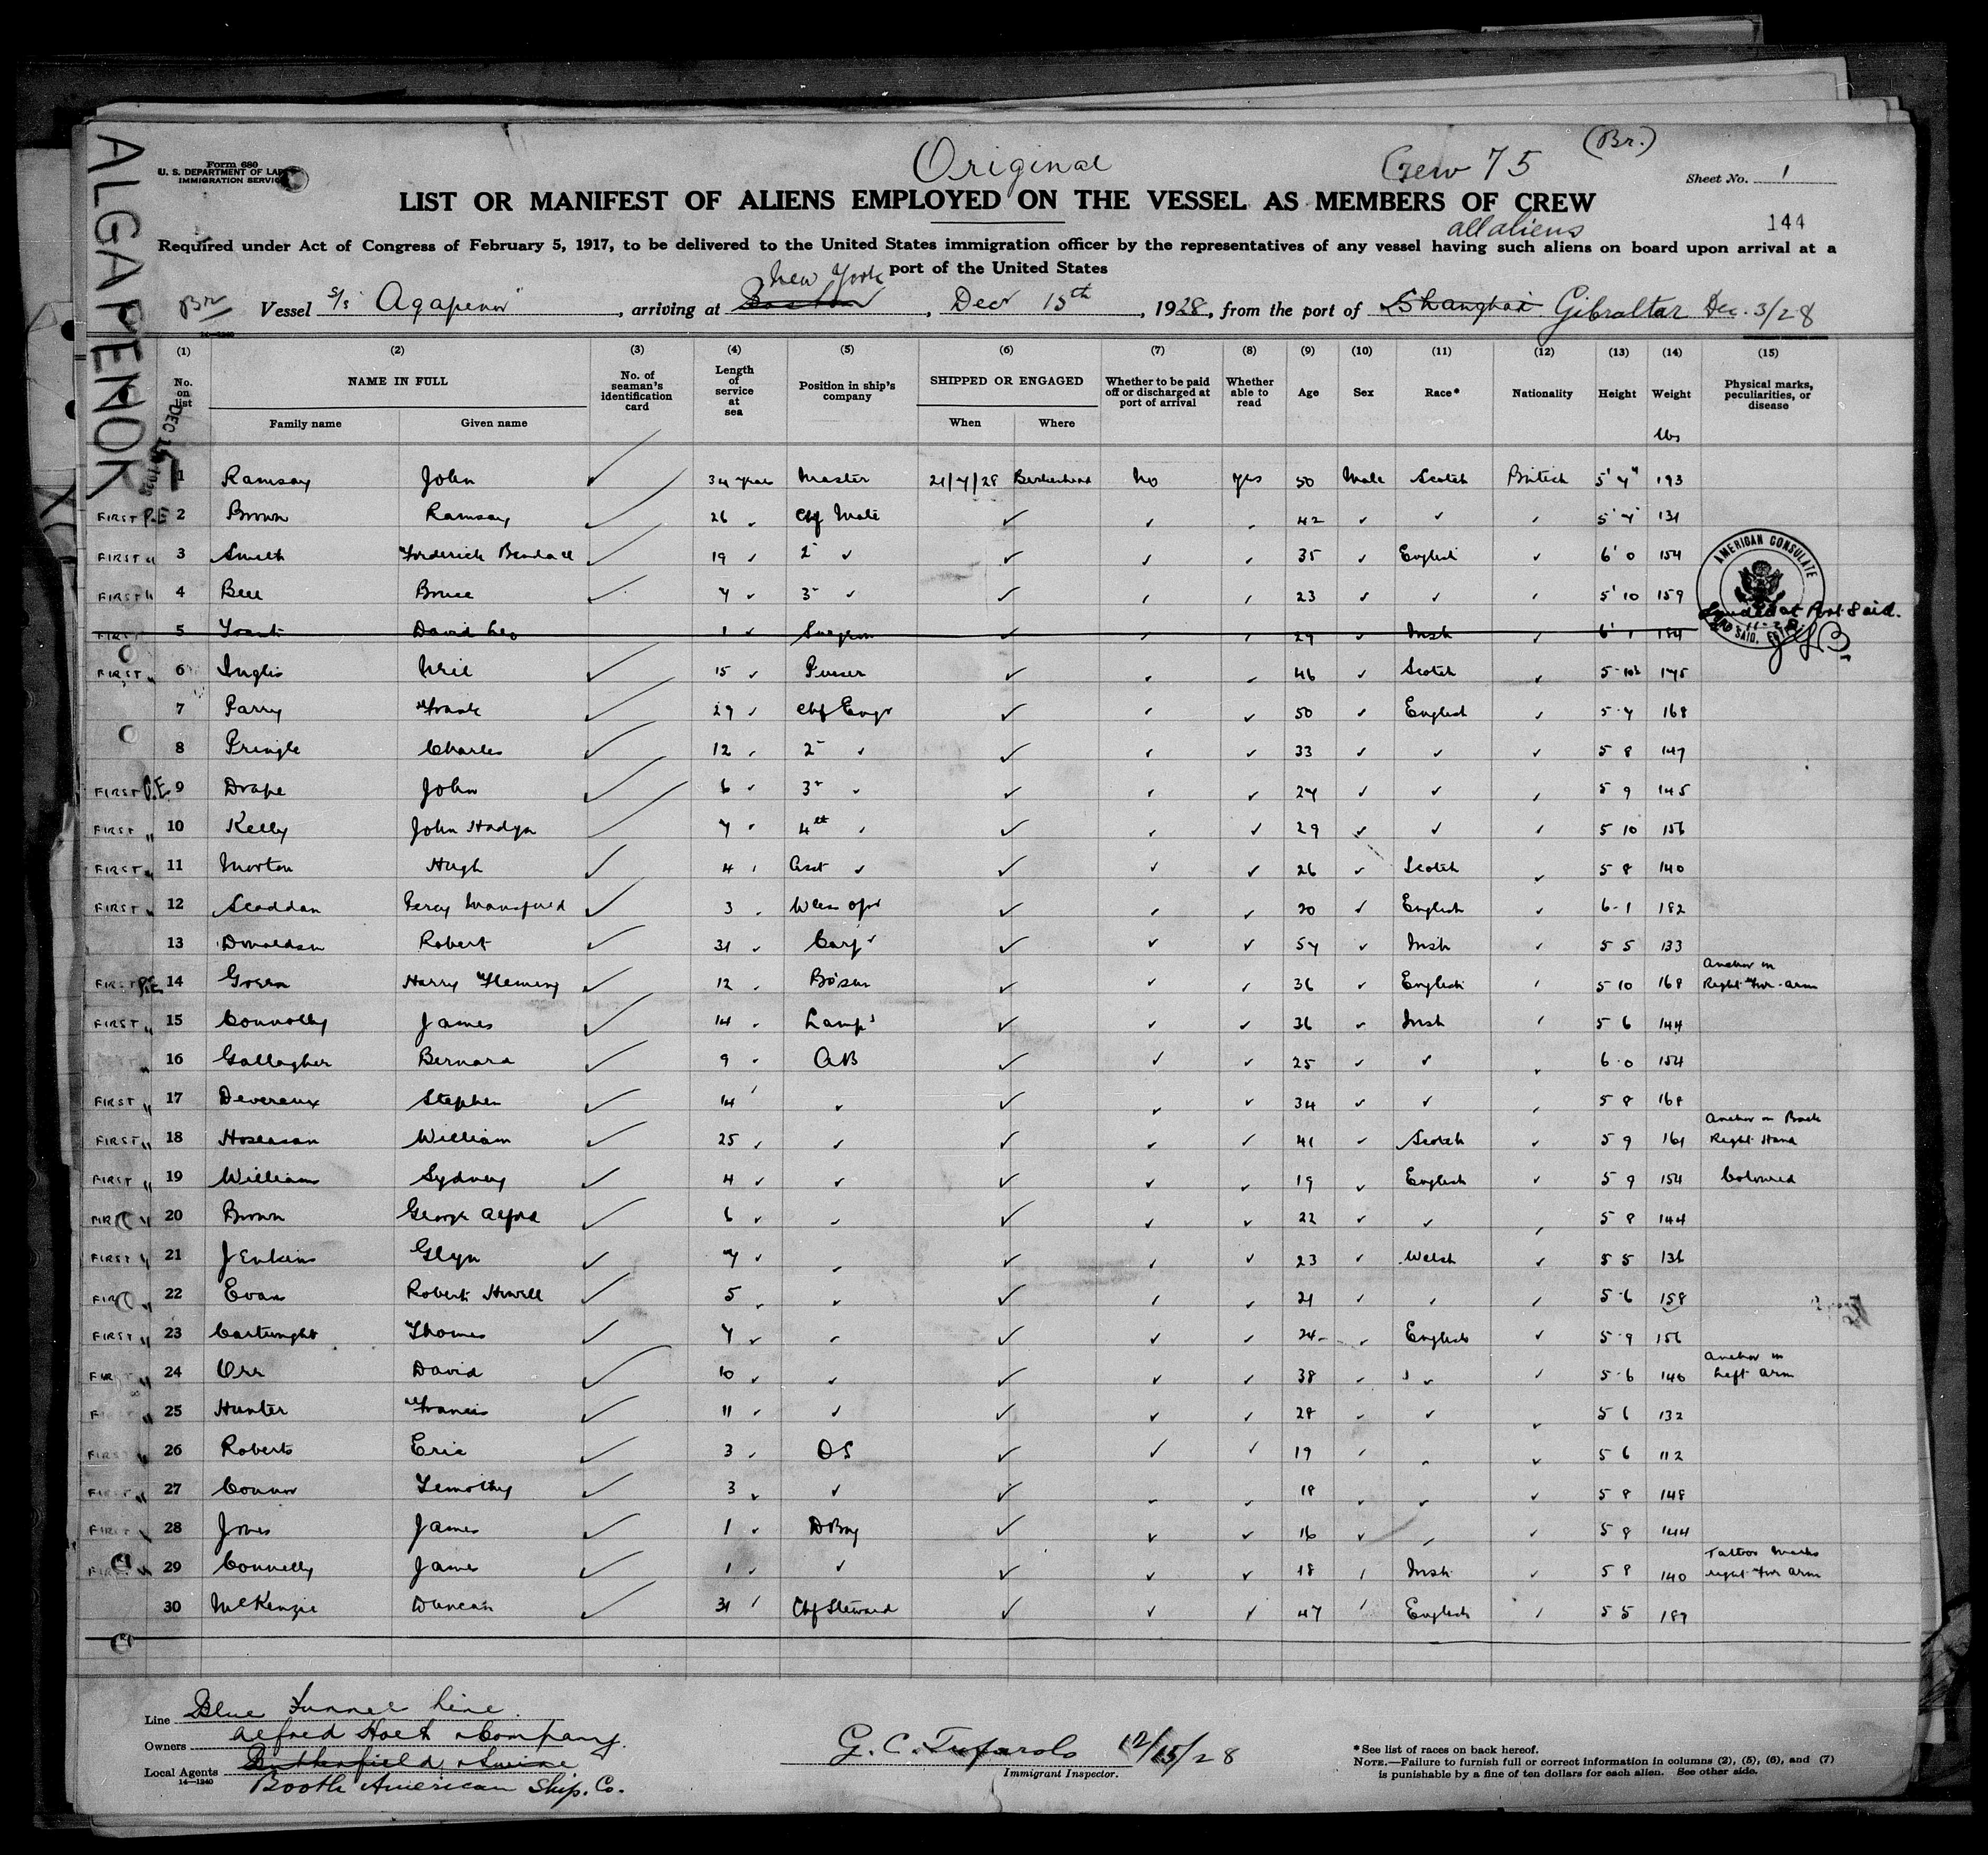 ALGAPENOR
Form 680
U. S. DEPARTMENT OF LAB
IMMIGRATION SERVICE
Original
Crew 75
(Br.)
Sheet No. 1
LIST OR MANIFEST OF ALIENS EMPLOYED ON THE VESSEL AS MEMBERS OF CREW
all aliens
144
Required under Act of Congress of February 5, 1917, to be delivered to the United States immigration officer by the representatives of any vessel having such aliens on board upon arrival at a
port of the United States
New York
Br Vessel S/S "Agapenor", arriving at Boston, Dec 15th, 1928, from the port of Shanghai Gibraltar Dec. 3/28
14-1240
(1) (2) (3) (4) (5) (6) (7) (8) (9) (10) (11) (12) (13) (14) (15)
No. on list NAME IN FULL No. of seaman's identification card Length of service at sea Position in ship's company SHIPPED OR ENGAGED Whether to be paid off or discharged at port of arrival Whether able to read Age Sex Race* Nationality Height Weight Physical marks, peculiarities, or disease
Family name Given name When Where
lbs
1 Ramsay John ✓ 34 years Master 21/7/28 Birkenhead No yes 50 Male Scotch British 5' 7" 193
FIRST P.E 2 Brown Ramsay ✓ 26 Chf Mate ✓ 42 ✓ ✓ 5' 7 131
FIRST " 3 Smith Frederick Bendall ✓ 19 ✓ 2 ✓ ✓ 35 ✓ English 6' 0 154
FIRST " 4 Bell Bruce ✓ 7 ✓ 3 ✓ ✓ 23 ✓ ✓ 5' 10 159
FIRST 5 Grant David Leo 1 ✓ Surgeon ✓ 29 ✓ Irish 6' 1 184
AMERICAN CONSULATE
Landed at Port Said.
PORT SAID, EGYPT
FIRST " 6 Inglis Neil ✓ 15 ✓ Purser ✓ 46 ✓ Scotch 5-10½ 175
7 Parry Frank ✓ 29 ✓ Chf Engr ✓ 50 ✓ English 5-7 168
8 Pringle Charles ✓ 12 2 ✓ ✓ 33 ✓ ✓ 5 8 147
FIRST P.E. 9 Drape John ✓ 6 ✓ 3 ✓ 27 ✓ ✓ 5 9 145
FIRST " 10 Kelly John Hadyn 7 4th ✓ 29 ✓ ✓ 5 10 156
FIRST " 11 Morton Hugh ✓ 4 Asst ✓ ✓ 26 ✓ Scotch 5 8 140
FIRST " 12 Scaddan Percy Mansfield ✓ 3 Wless Opr ✓ 20 ✓ English 6-1 182
13 Donaldson Robert ✓ 31 Carpr ✓ 57 ✓ Irish 5 5 133
Anchor on
FIRST P.E. 14 Green Harry Fleming ✓ 12 Bosun ✓ 36 ✓ English 5 10 168 Right For-arm
FIRST " 15 Connolly James ✓ 14 Lamps ✓ 36 ✓ Irish 5 6 144
" 16 Gallagher Bernard ✓ 9 AB ✓ 25 ✓ ✓ 6-0 154
FIRST " 17 Devereaux Stephen ✓ 14 ✓ ✓ 34 ✓ ✓ 5 8 168
Anchor on Back
FIRST " 18 Hoseason William ✓ 25 ✓ ✓ 41 ✓ Scotch 5 9 161 Right Hand
FIRST " 19 Williams Sydney ✓ 4 ✓ ✓ ✓ 19 ✓ English 5 9 154 Coloured
FIRST " 20 Brown George Alfred ✓ 6 ✓ ✓ 22 ✓ ✓ 5 8 144
FIRST " 21 Jenkins Glyn ✓ 7 ✓ ✓ 23 ✓ Welsh 5 5 136
FIRST " 22 Evans Robert Howell ✓ 5 ✓ 21 5-6 158
FIRST " 23 Cartwright Thomas ✓ 7 ✓ ✓ 24 English 5-9 156
Anchor on
FIRST " 24 Orr David ✓ 10 ✓ ✓ 38 ✓ 5-6 140 Left arm
FIRST " 25 Hunter Francis ✓ 11 ✓ ✓ 28 ✓ 5 6 132
FIRST " 26 Roberts Eric ✓ 3 OS ✓ 19 5 6 112
FIRST " 27 Connor Timothy ✓ 3 ✓ ✓ 18 5 8 148
FIRST " 28 Jones James ✓ 1 ✓ D Boy ✓ 16 ✓ 5 8 144
Tattoo Marks
FIRST " 29 Connelly James ✓ 1 ✓ ✓ 18 Irish 5 8 140 right For arm
30 McKenzie Duncan ✓ 31 Chf Steward ✓ 47 English 5 5 189
Line Blue Funnel Line.
Owners Alfred Holt & Company.
Local Agents Butterfield & Swire
14-1240
Booth American Ship. Co.
G. C. Tufarolo 12/15/28
Immigrant Inspector.
*See list of races on back hereof.
NOTE.—Failure to furnish full or correct information in columns (2), (5), (6), and (7)
is punishable by a fine of ten dollars for each alien. See other side.